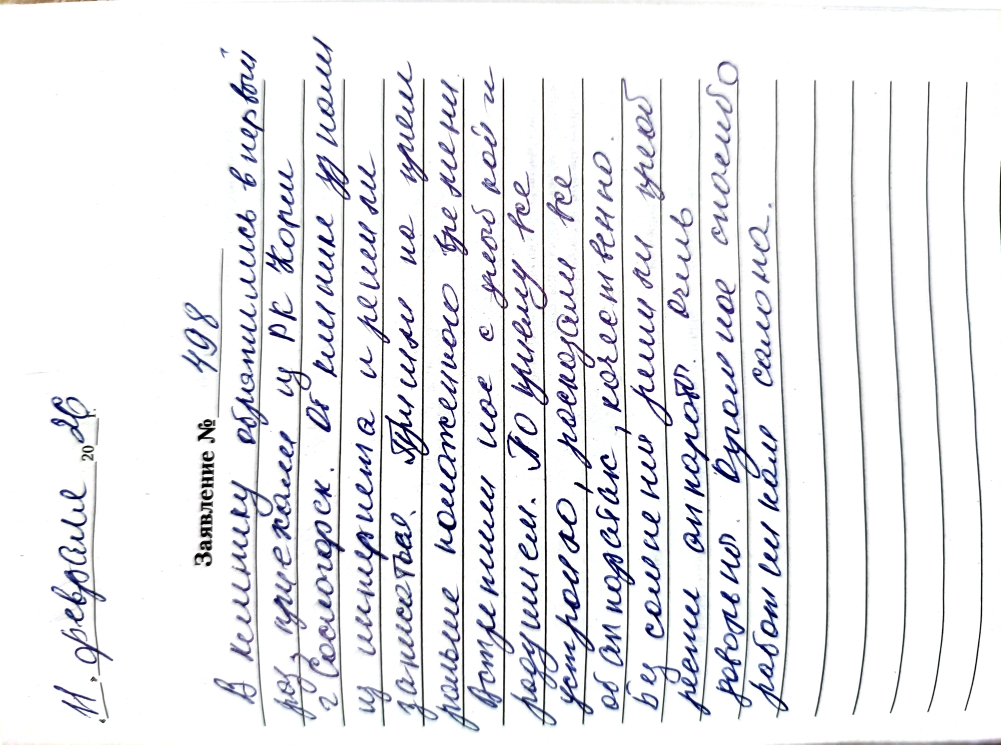 "11" февраля 2026
Заявление № 498
В клинику обратились в первый
раз, приехали из РК Коми
г Сосногорск. От клинике узнали
из интернета и решили
записатся. Приняли на прием
раньше положенного времени
Встретили нас с улыбкой и
радушием. По приему все
устроило, расказали все
об аппаратах, качественно.
Без сомнения решили приоб
рести аппараты. Очень
довольны. Огромное спасибо
работникам салона.